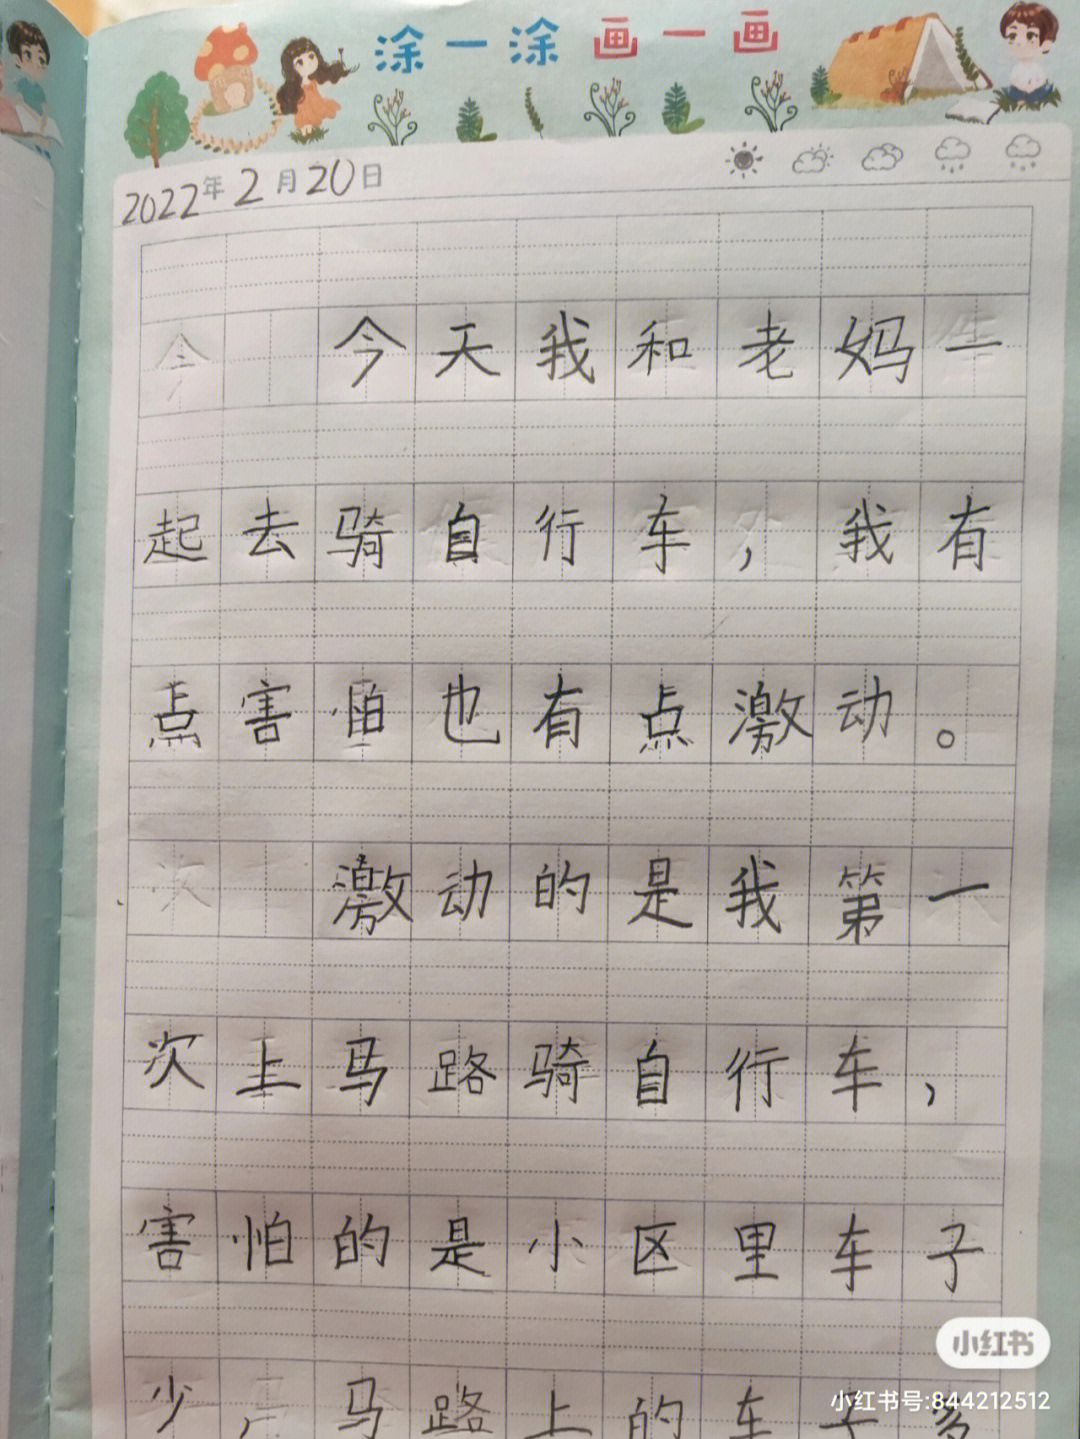 涂一涂 画一画
2022年2月20日
今天我和老妈一
起去骑自行车，我有
点害怕也有点激动。
激动的是我第一
次上马路骑自行车，
害怕的是小区里车子
少，马路上的车子多
小红书
小红书号:844212512